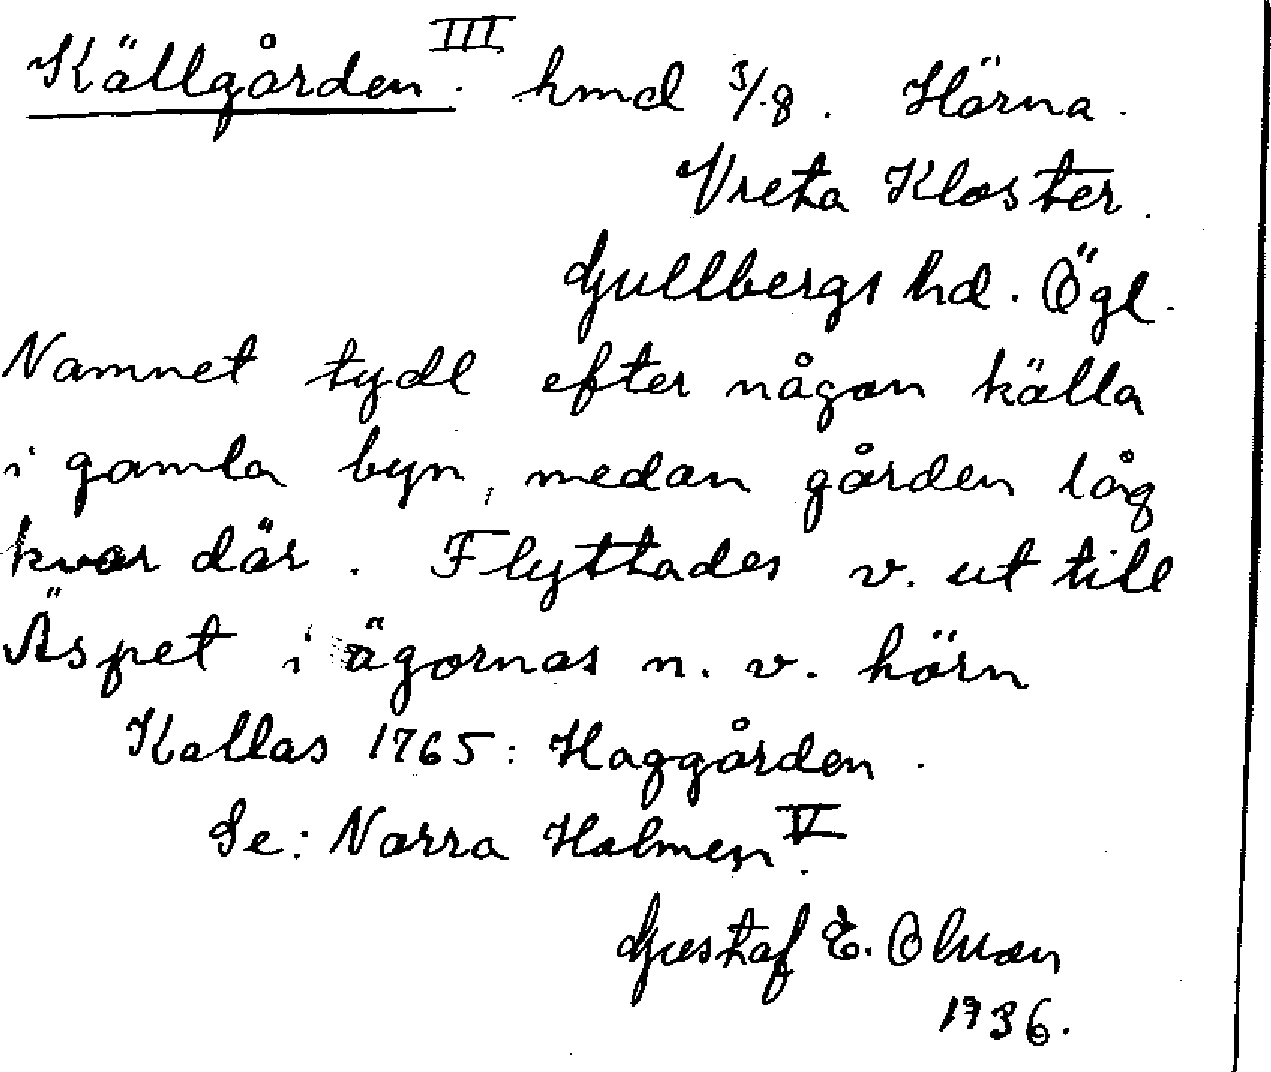 Källgården III. hmd 3/8. Härna.
Vreta Kloster.
Gullbergs hd. Ögl.
Namnet tydl efter någon källa
i gamla byn, medan gården låg
kvar där. Flyttades v. ut till
Äspet i ägornas n. v. hörn
Kallas 1765: Haggården.
Se: Norra Holmen V.
Gustaf E. Olsson
1936.